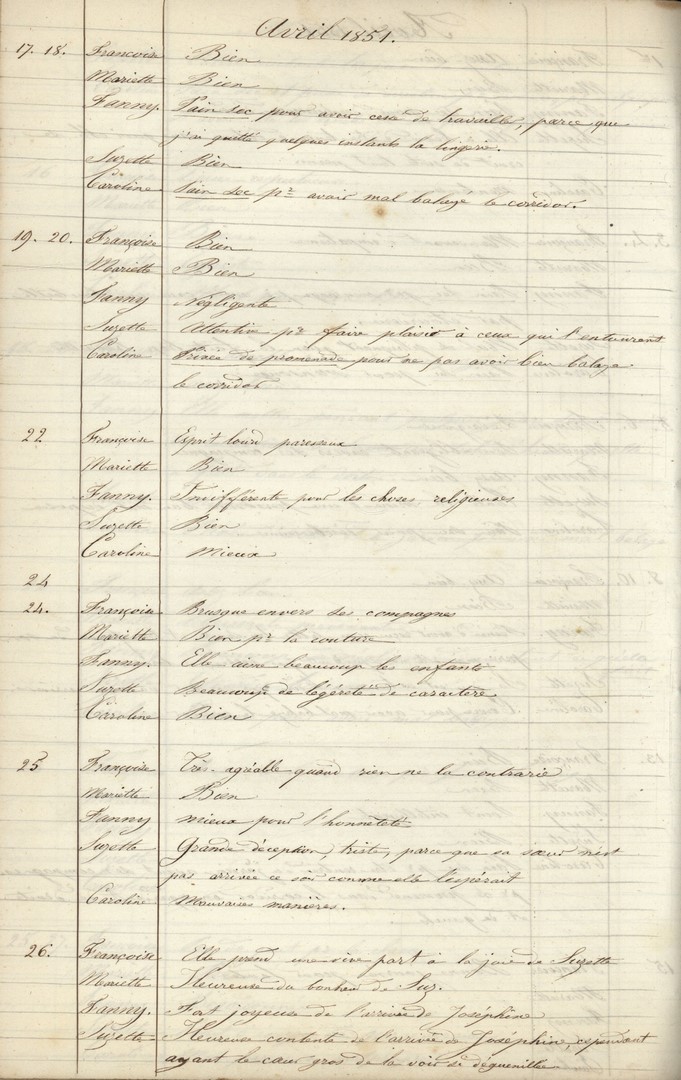 Avril 1851.
17. 18. Francoise Bien
Mariette Bien
Fanny. Pain sec pour avoir cessé de travailler, parce que
j'ai quitté quelques instants la lingerie.
Suzette Bien
Caroline Pain sec pr avoir mal balayé le corridor.
19. 20. Françoise Bien
Mariette Bien
Fanny Négligente
Suzette Attentive pr faire plaisir à ceux qui l'entourent
Caroline Privée de promenade pour ne pas avoir bien balayé
le corridor
22 Françoise Esprit lourd paresseux
Mariette Bien
Fanny. Indifférente pour les choses religieuses
Suzette Bien
Caroline Mieux
24
24. Françoise Brusque envers ses compagnes
Mariette Bien pr la couture
Fanny. Elle aime beaucoup les enfants
Suzette Beaucoup de légéreté de caractère
Caroline Bien
25 Françoise Très-agréable quand rien ne la contrarie
Mariette Bien
Fanny mieux pour l'honnêteté
Suzette Grande déception, triste, parce que sa sœur n'est
pas arrivée ce soir comme elle l'espérait
Caroline Mauvaises manières.
26. Françoise Elle prend une vive part à la joie de Suzette
Mariette Heureuse du bonheur de Suz.
Fanny. Fort joyeuse de l'arrivée de Joséphine
Suzette Heureuse contente de l'arrivée de Joséphine, cependant
ayant le cœur gros de la voir si déguenillée